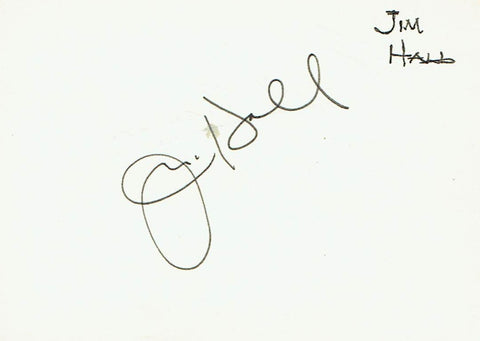 Jim
Hall
Jim Hall